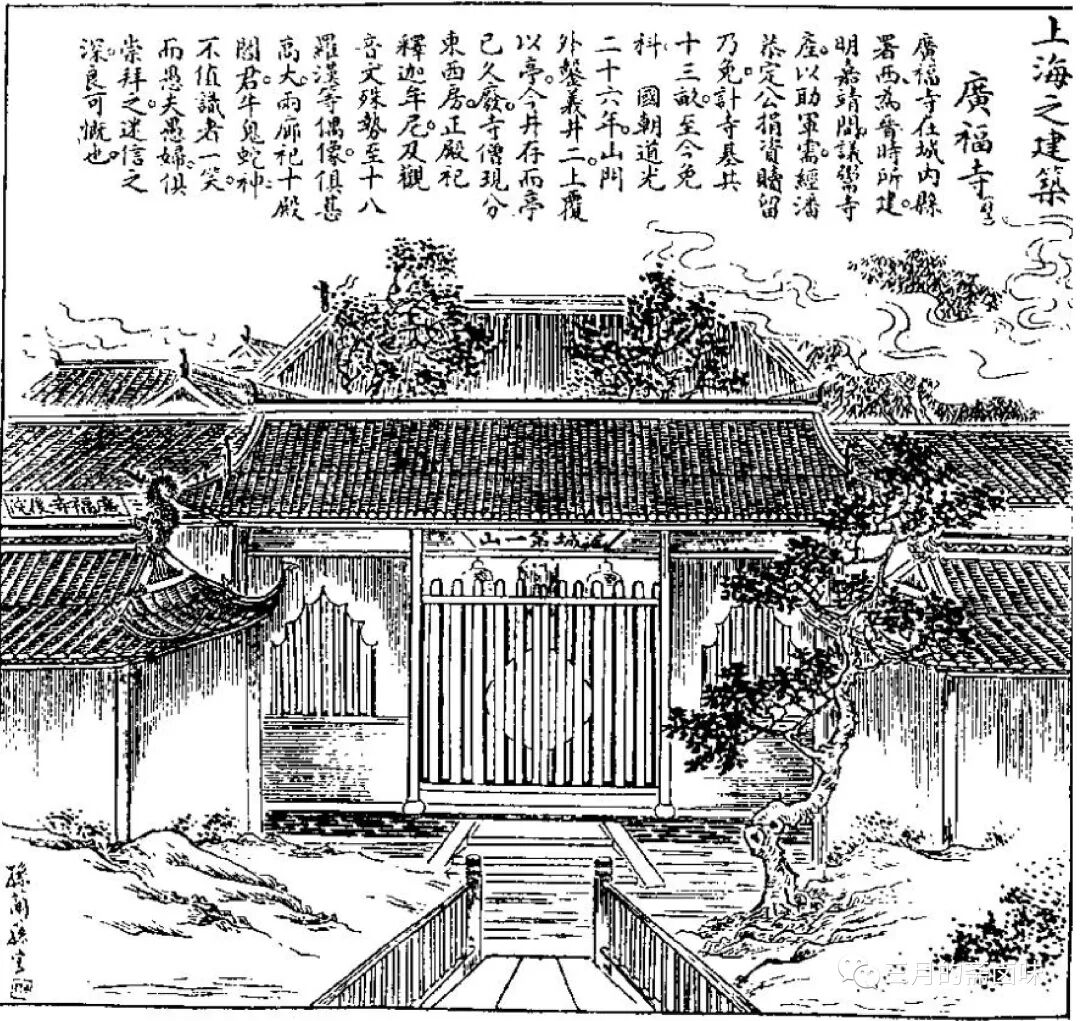 上海之建築
廣福寺
廣福寺在城内縣
署西為晉時所建
明嘉靖間議鬻寺
產以助軍需經潘
恭定公捐資贖留
乃免計寺基共
十三畝至今免
科　國朝道光
二十六年山門
外鑿義井二上覆
以亭今井存而亭
已久廢寺僧現分
東西房正殿祀
釋迦牟尼及觀
音文殊勢至十八
羅漢等偶像俱甚
高大兩廊祀十殿
閻君牛鬼蛇神
不值識者一笑
而愚夫愚婦俱
崇拜之迷信之
深良可慨也
廣福寺後院
滬城第一山
孫蘭蓀寫
三月的萧卤味